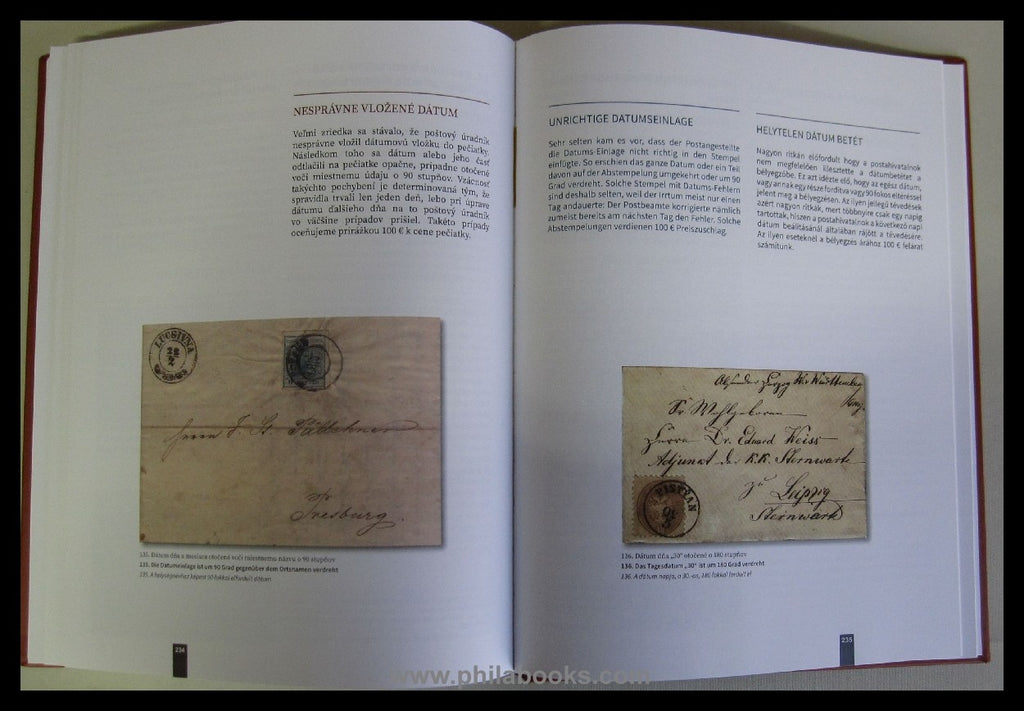 NESPRÁVNE VLOŽENÉ DÁTUM
Veľmi zriedka sa stávalo, že poštový úradník
nesprávne vložil dátumovú vložku do pečiatky.
Následkom toho sa dátum alebo jeho časť
odtlačili na pečiatke opačne, prípadne otočené
voči miestnemu údaju o 90 stupňov. Vzácnosť
takýchto pochybení je determinovaná tým, že
spravidla trvali len jeden deň, lebo pri úprave
dátumu ďalšieho dňa na to poštový úradník
vo väčšine prípadov prišiel. Takéto prípady
oceňujeme prirážkou 100 € k cene pečiatky.
LUCSIVNA
Presburg.
135. Dátum dňa a mesiaca otočené voči miestnemu názvu o 90 stupňov
135. Die Datumeinlage ist um 90 Grad gegenüber dem Ortsnamen verdreht
135. A helységnévhez képest 90 fokkal elfordult dátum
234
UNRICHTIGE DATUMSEINLAGE
Sehr selten kam es vor, dass der Postangestellte
die Datums-Einlage nicht richtig in den Stempel
einfügte. So erschien das ganze Datum oder ein Teil
davon auf der Abstempelung umgekehrt oder um 90
Grad verdreht. Solche Stempel mit Datums-Fehlern
sind deshalb selten, weil der Irrtum meist nur einen
Tag andauerte: Der Postbeamte korrigierte nämlich
zumeist bereits am nächsten Tag den Fehler. Solche
Abstempelungen verdienen 100 € Preiszuschlag.
HELYTELEN DÁTUM BETÉT
Nagyon ritkán előfordult hogy a postahivatalnok
nem megfelelően illesztette a dátumbetétet a
bélyegzőbe. Ez azt idézte elő, hogy az egész dátum,
vagy annak egy része fordítva vagy 90 fokos eltéréssel
jelent meg a bélyegzésen. Az ilyen jellegű tévedések
azért nagyon ritkák, mert többnyire csak egy napig
tartottak, hiszen a postahivatalnok a következő napi
dátum beállításánál általában rájött a tévedésére.
Az ilyen eseteknél a bélyegzés árához 100 € felárat
számítunk.
Herrn Dr. Eduard Weiss
Adjunkt der K.K. Sternwarte
zu Leipzig
Sternwarte
PISTYAN
136. Dátum dňa „30“ otočené o 180 stupňov
136. Das Tagesdatum „30“ ist um 180 Grad verdreht
136. A dátum napja, a 30.-as, 180 fokkal fordult el
235
www.philabooks.com